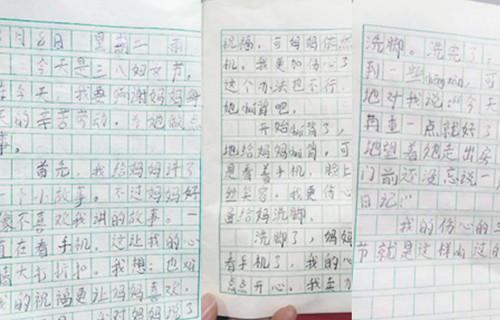 月8日 星期二 雨
今天是三八妇女节。
在今天,我要感谢妈妈每
天的辛苦劳动,为她做点
事。
首先,我给妈妈讲了
一个小故事。不过妈妈好
像不喜欢我讲的故事。一
直在看手机,这让我的心
情大打折扣。我想:也对
我的祝福更让妈妈喜欢。
我对妈妈说了
祝福,可妈妈依然
机。我更加伤心了
这个办法也不行
她捶背吧。
开始捶背了,
地给妈妈捶背,可
是看着手机,脸上
丝笑容。我更伤心
备给妈妈洗脚。
洗脚了,妈妈
看手机了,我的心
点点开心。我卖力
洗脚。洗完了,
到一些
地对我说:“今天
再重一点就好了
地望着她走出房
门前还没忘说一
日记!”
我的伤心的三
节就是这样的过的